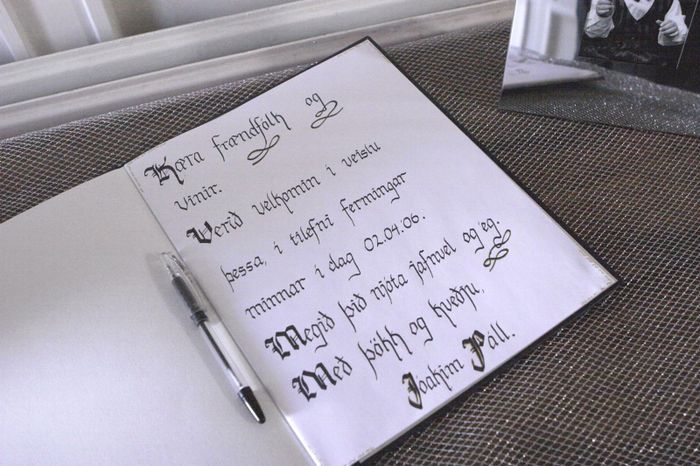 Kæra frændfólk og
vinir.
Verið velkomin í veislu
þessa, í tilefni fermingar
minnar í dag 02.04.06.
Megið þið njóta jafnvel og eg.
Með þökk og kveðju,
Jóakim Páll.